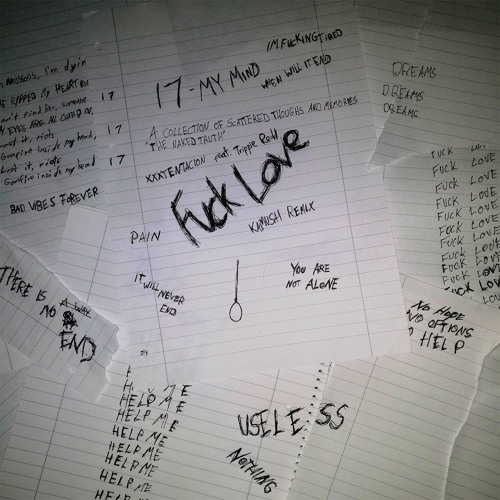 IM FUCKING TIRED
17 - MY MIND
WHEN WILL IT END
A COLLECTION OF SCATTERED THOUGHS AND MEMORIES
"THE NAKED TRUTH"
XXXTENTACION feat. Trippie Redd
Fuck Love
KAMISH REMIX
PAIN
IT WILL NEVER
END
YOU ARE
NOT ALONE
I'm dyin
RIPPED MY HEART OUT
find her, someone 17
EYES ARE ALL COVERED,
Lost it, riots 17
Gunfire inside my head,
Lost it, riots 17
Gunfire inside my head
BAD VIBES FOREVER
THERE IS
NO
END
DREAMS
DREAMS
DREAMS
FUCK LOVE
FUCK LOVE
FUCK LOVE
FUCK LOVE
FUCK LOVE
FUCK LOVE
FUCK LOVE
FUCK LOVE
FUCK LOVE
FUCK LOVE
NO HOPE
NO OPTIONS
HELP
HELP ME
HELP ME
HELP ME
HELP ME
HELP ME
HELP ME
HELP ME
HELP ME
USELESS
NOTHING